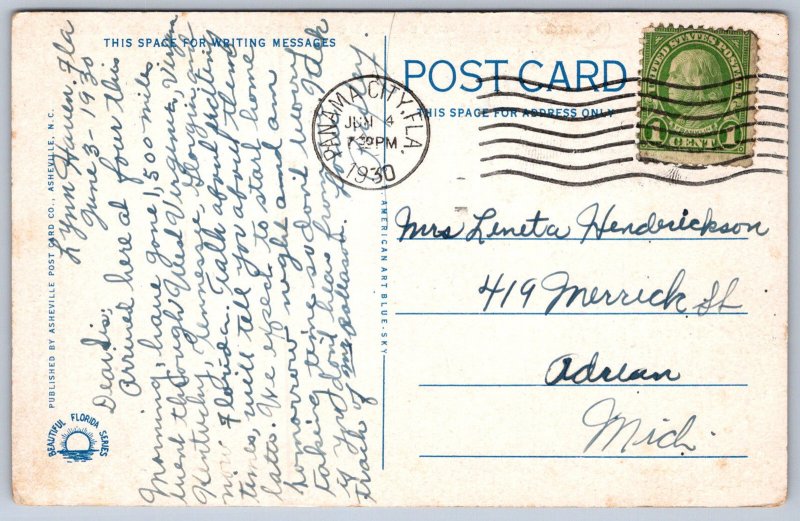 THIS SPACE FOR WRITING MESSAGES
Lynn Haven, Fla
June 3-1930
Dear Sis;
Arrived here at four this
Morning, have gone 1,500 miles.
went through West Virginia, Virginia
Kentucky, Tennessee, Georgia, and
now Florida. Talk about exciting
times, will tell you about them
later. We expect to start home
tomorrow night and am
taking time so don't worry
if you don't hear from
trail of me follows.
PUBLISHED BY ASHEVILLE POST CARD CO., ASHEVILLE, N.C.
BEAUTIFUL FLORIDA SERIES
AMERICAN ART BLUE-SKY
POST CARD
THIS SPACE FOR ADDRESS ONLY
PANAMA CITY, FLA.
JUN 4
7 PM
1930
UNITED STATES POSTAGE
FRANKLIN
1 CENT 1
Mrs Leneta Hendrickson
419 Merrick St
Adrian
Mich